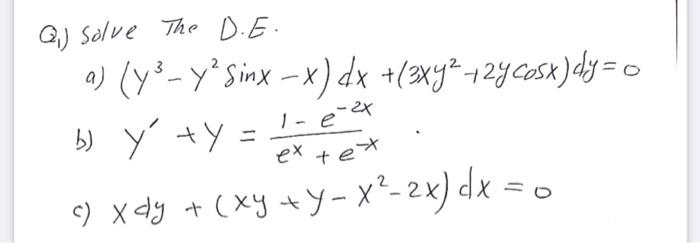 Q1) Solve The D.E.
a) (y³ - y² Sinx - x) dx + (3xy² + 2y cosx) dy = 0
b) y′ + y = (1 - e^-2x) / (e^x + e^-x) .
c) x dy + (xy + y - x² - 2x) dx = 0